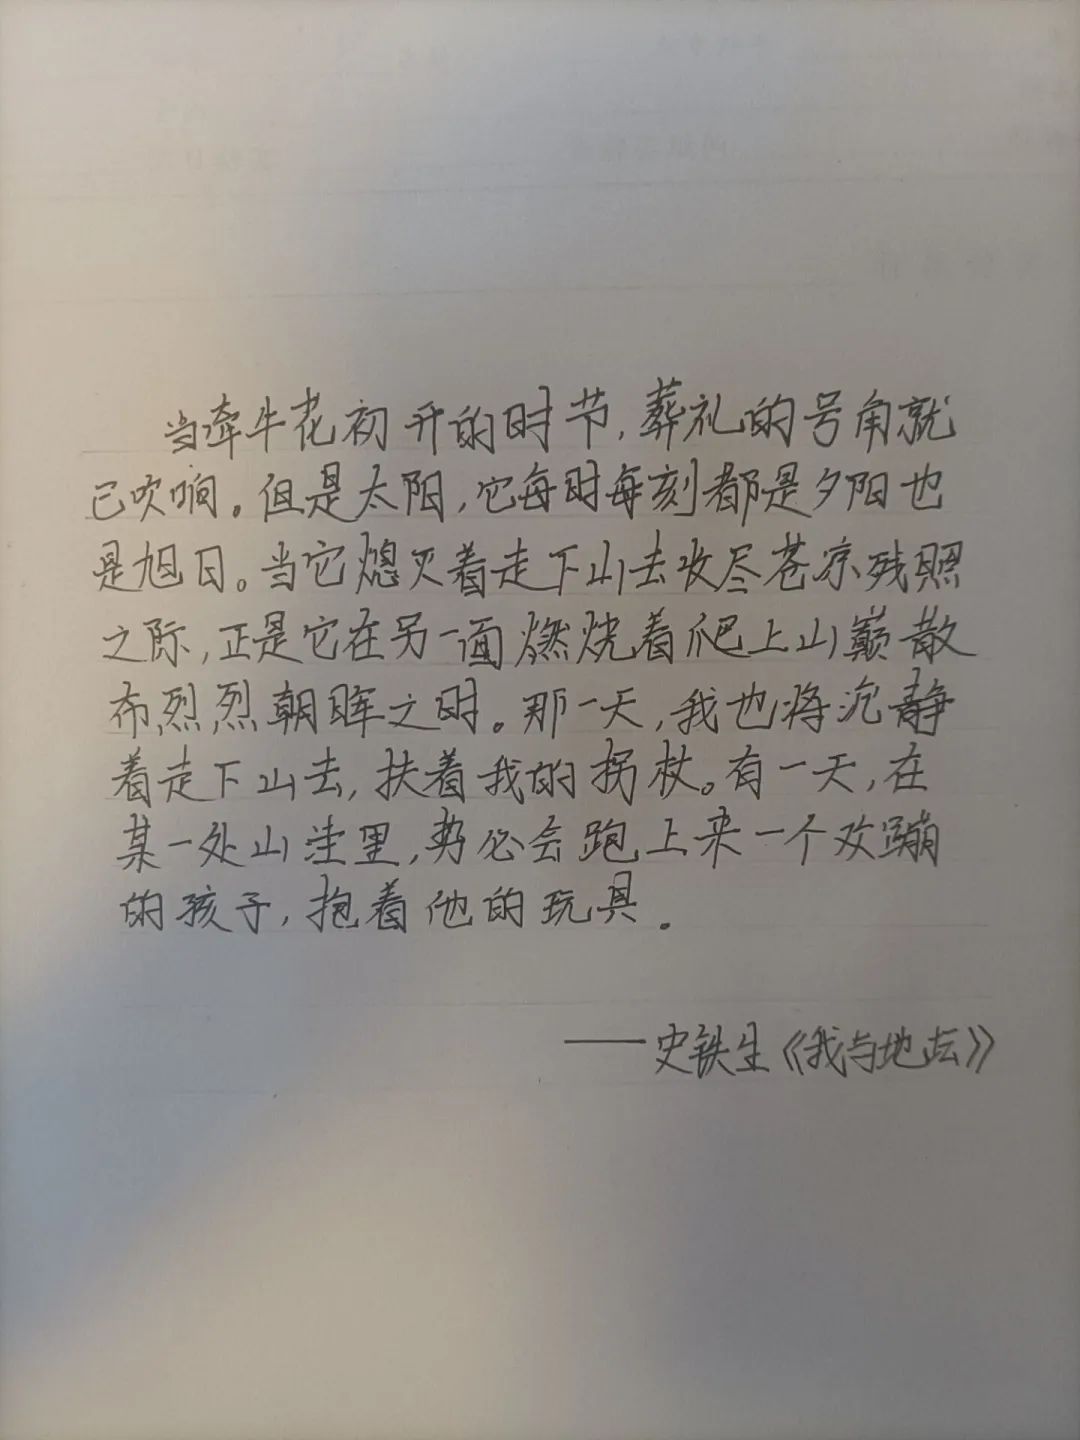 当牵牛花初开的时节,葬礼的号角就
已吹响。但是太阳,它每时每刻都是夕阳也
是旭日。当它熄灭着走下山去收尽苍凉残照
之际,正是它在另一面燃烧着爬上山巅散
布烈烈朝晖之时。那一天,我也将沉静
着走下山去,扶着我的拐杖。有一天,在
某一处山洼里,势必会跑上来一个欢蹦
的孩子,抱着他的玩具。
——史铁生《我与地坛》